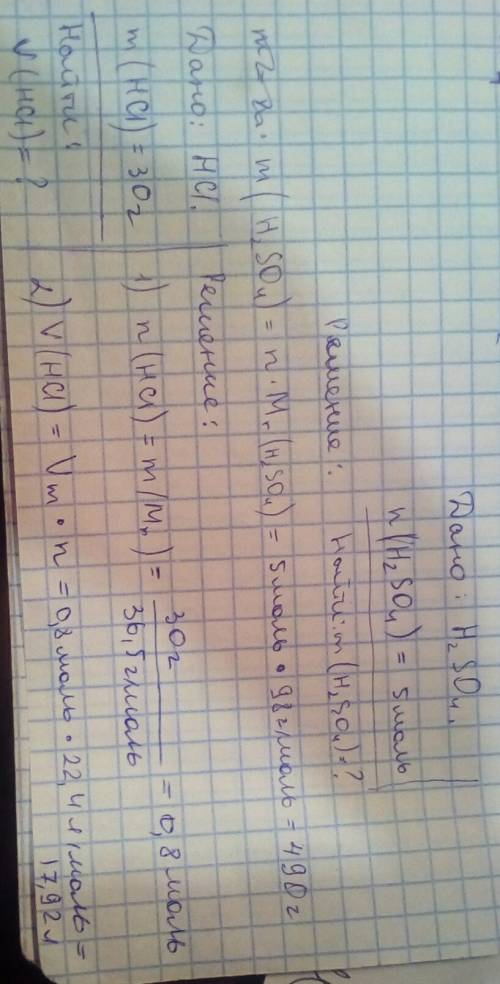 Дано: H₂SO₄.
n(H₂SO₄) = 5 моль
Найти: m(H₂SO₄)-?
Решение:
m(H₂SO₄) = n · Mr(H₂SO₄) = 5 моль · 98 г/моль = 490 г
Дано: HCl.
m(HCl) = 30 г
Найти:
V(HCl) = ?
Решение:
1) n(HCl) = m/Mr) = 30 г / 36,5 г/моль = 0,8 моль
2) V(HCl) = Vm · n = 0,8 моль · 22,4 л/моль =
17,92 л